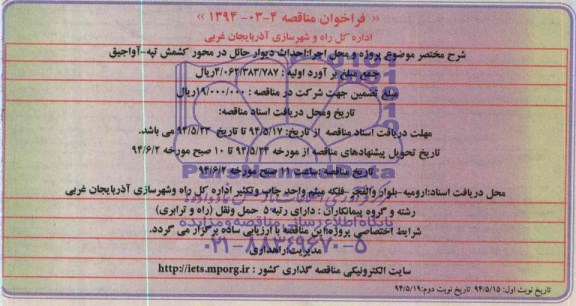 « فراخوان مناقصه ۴-۰۳- ۱۳۹۴ »
اداره کل راه و شهرسازی آذربایجان غربی
شرح مختصر موضوع پروژه و محل اجرا:احداث دیوار حائل در محور کشمش تپه-آواجیق
جمع مبلغ بر آورد اولیه : ۴/۰۶۲/۳۸۳/۷۸۷ریال
مبلغ تضمین جهت شرکت در مناقصه : ۱۹/۰۰۰/۰۰۰ریال
تاریخ ومحل دریافت اسناد مناقصه:
مهلت دریافت اسناد مناقصه از تاریخ: ۹۴/۵/۱۷ تا تاریخ ۹۴/۵/۲۳ می باشد.
تاریخ تحویل پیشنهادهای مناقصه از مورخه ۹۴/۵/۲۴ تا ۱۰ صبح مورخه ۹۴/۶/۲
تاریخ مناقصه :ساعت ۱۱ صبح مورخه ۹۴/۶/۲
محل دریافت اسناد:ارومیه-بلوار والفجر-فلکه میثم واحد چاپ وتکثیر اداره کل راه وشهرسازی آذربایجان غربی
رشته و گروه پیمانکاران : دارای رتبه ۵ حمل ونقل (راه و ترابری)
شرایط اختصاصی پروژه:این مناقصه با ارزیابی ساده برگزار می گردد.
مدیریت:راهداری
سایت الکترونیکی مناقصه گذاری کشور : http://iets.mporg.ir
تاریخ نوبت اول: ۹۴/۵/۱۵ تاریخ نوبت دوم:۹۴/۵/۱۹
ParsNamadData
پایگاه اطلاع رسانی مناقصه و مزایده
۰۲۱-۸۸۳۴۹۶۷۰-۵